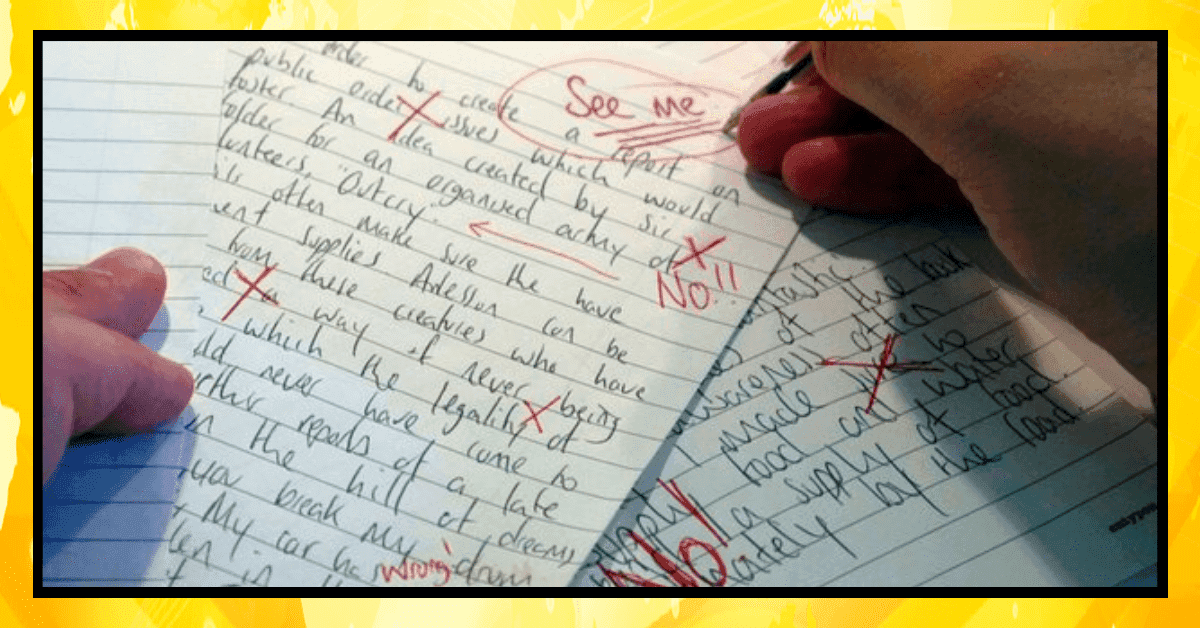 order to create a report on
public order issues which would
foster. An idea created by sir
older for an organised army of
lunteers, "Outcry.
ils often make sure the have
vent supplies. Adesson can be
from these creatures who have
ed a way of never being
which the legality of
ld never have come to
rther reports of a late
in the hill of dreams
you break my drum
My car has
len in
See me
No!!
wrong
ntastic.
es of the book
awareness often
I made
food and water
a supply of food.
ately by the food.
supply
No!